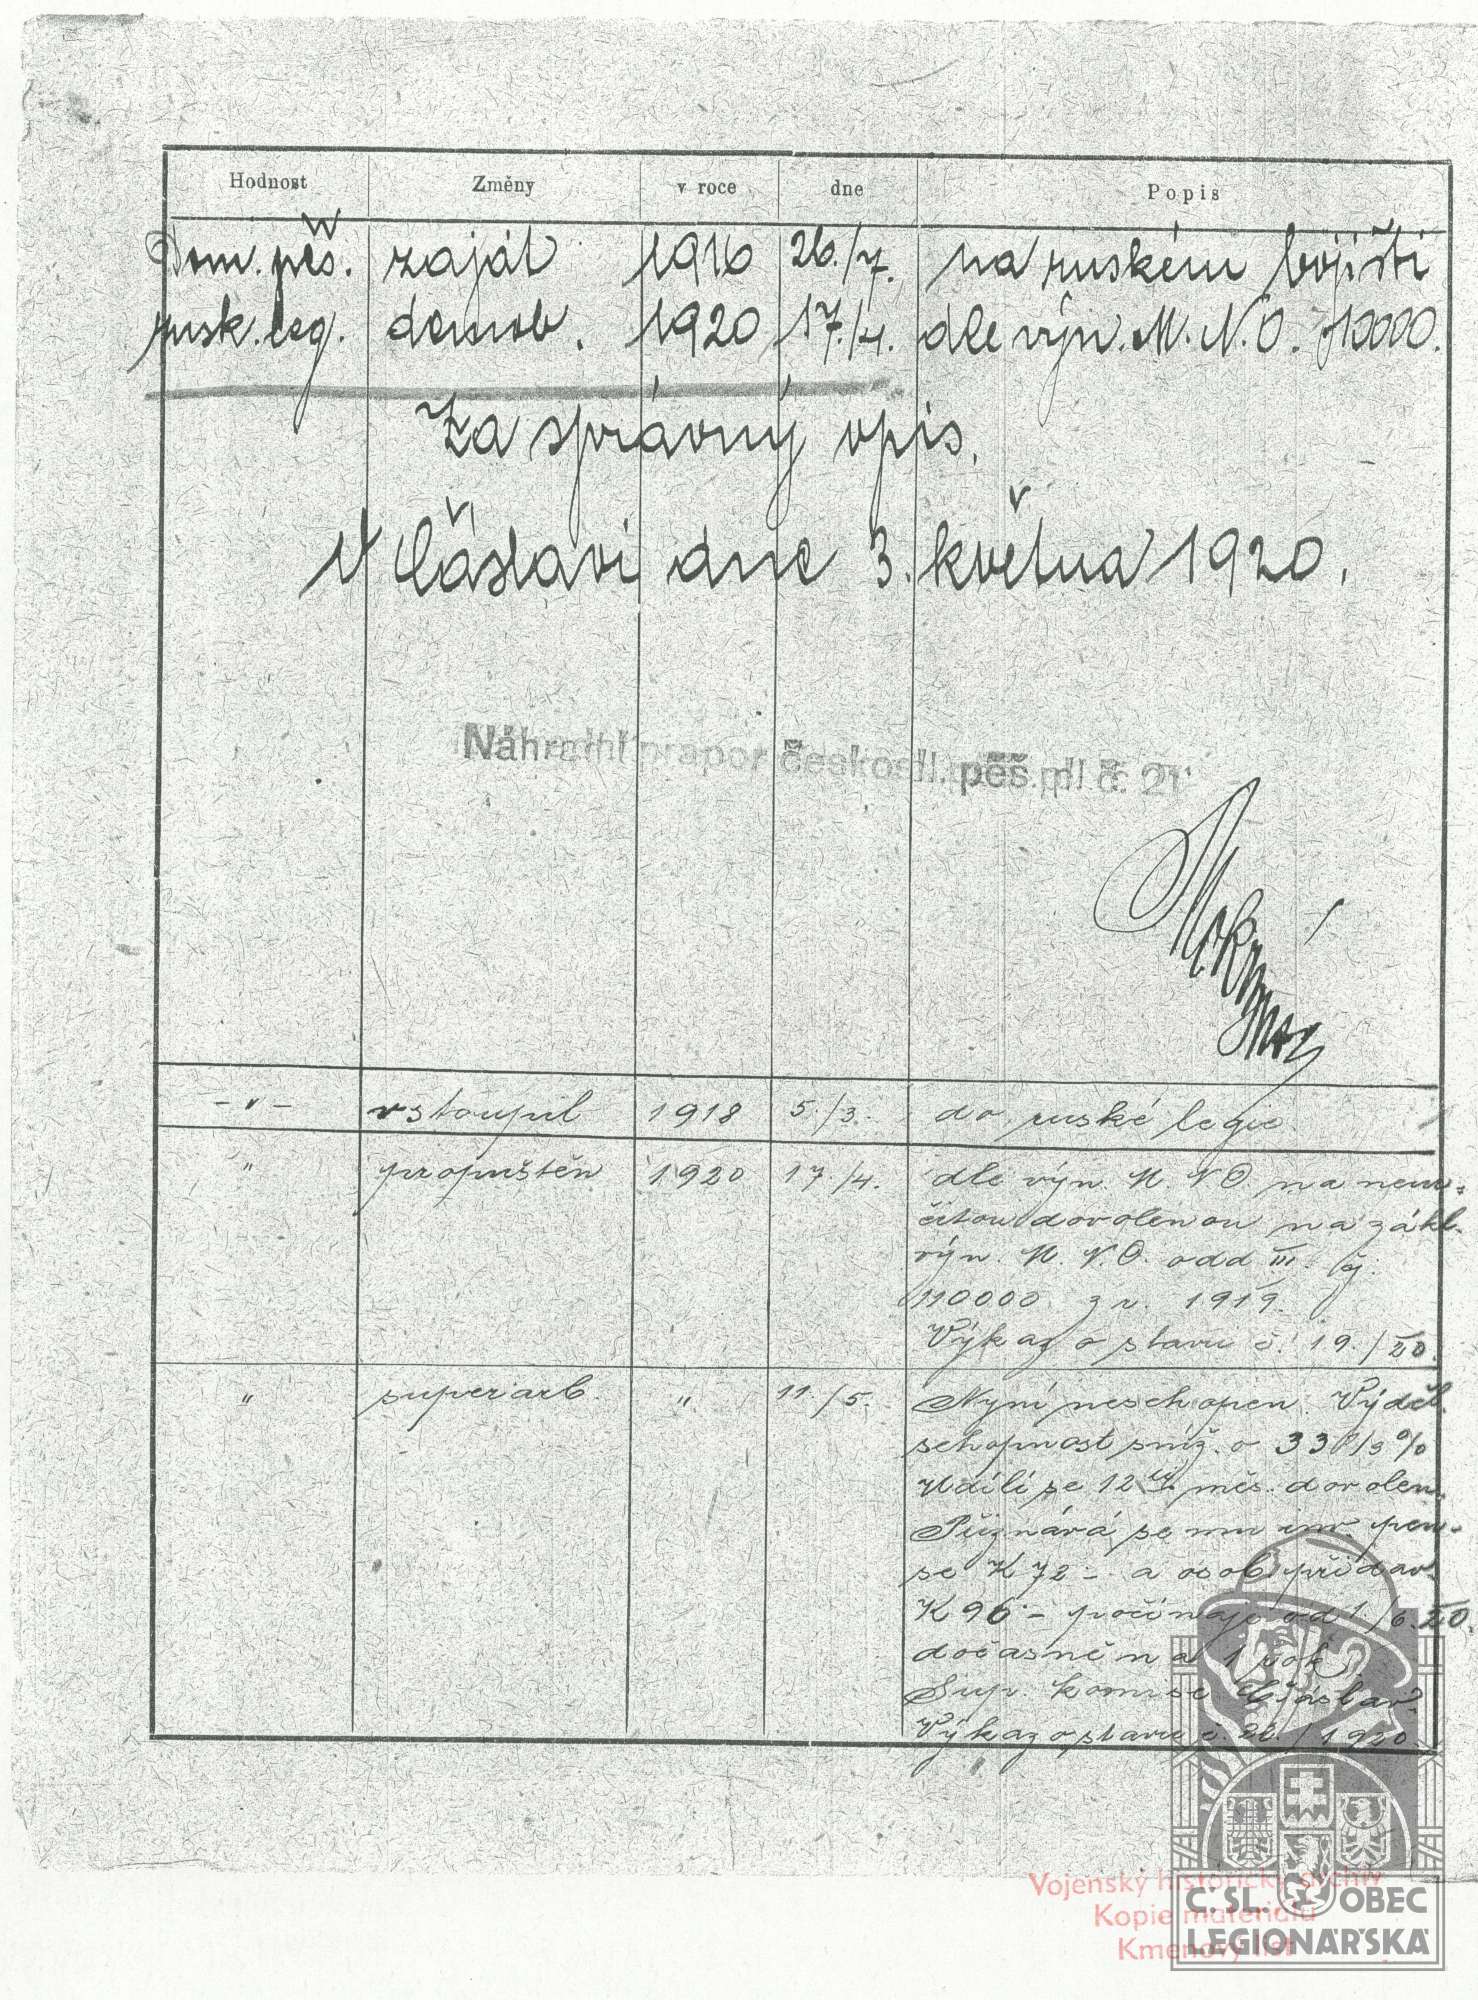 Hodnost Změny v roce dne Popis
Dom. pěš. zajat 1916 26./7. na ruském bojišti
rusk. leg. demob. 1920 17./4. dle výn. M. N. O. 110000.
Za správný opis.
V Čáslavi dne 3. května 1920.
Náhradní prapor českosl. pěš. pl. č. 21
-"- vstoupil 1918 5./3. do ruské legie.
" propuštěn 1920 17./4. dle výn. M. N O. na neur-
čitou dovolenou na zákl.
výn. M. N. O. odd III. čj.
110000 z r. 1919.
Výkaz o stavu č. 19./20.
" superarb. " 11./5. Nyní neschopen. Výděl.
schopnost sníž. o 33 1/3 %
Udílí se 12ti měs. dovolen.
Přiznává se mu inv. pen-
se K 72 - a osob. přídav.
K 96 - počínaje od 1./6. 20.
dočasně na 1 rok.
Sup. komise Čáslav.
Výkaz o stavu č. /1920.
Vojenský historický archiv
Kopie materiálu
Kmenový list
Č.SL. OBEC
LEGIONÁŘSKÁ